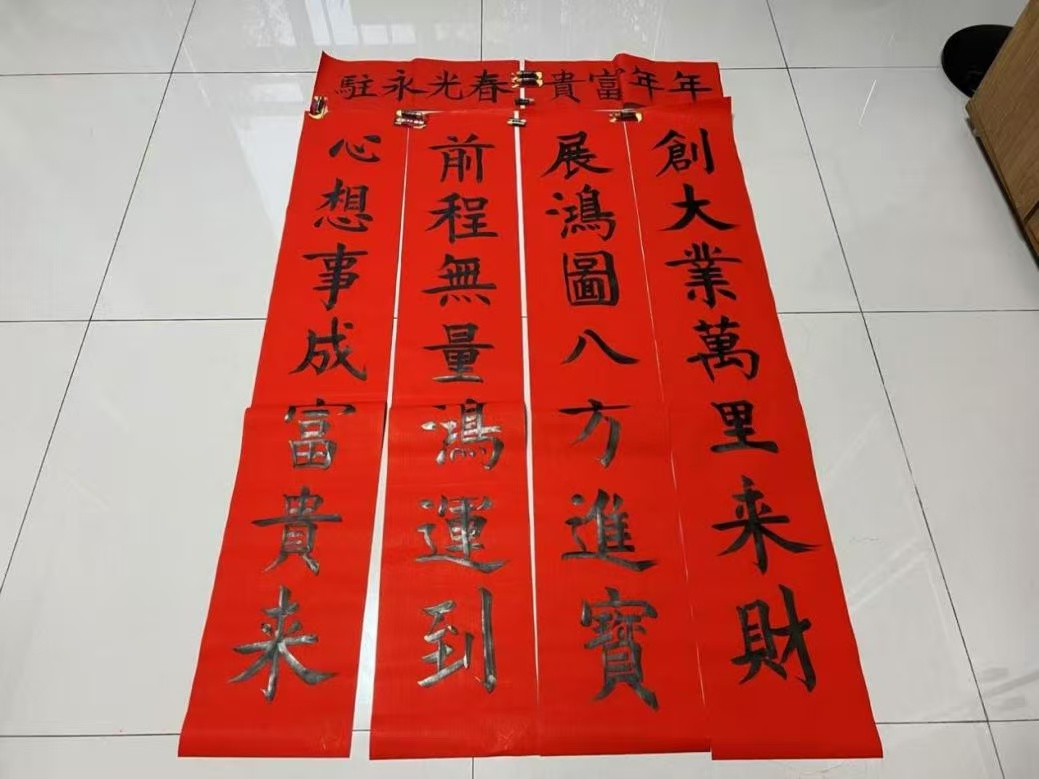 年年富貴
春光永駐
創大業萬里来財
展鴻圖八方進寶
前程無量鴻運到
心想事成富貴来